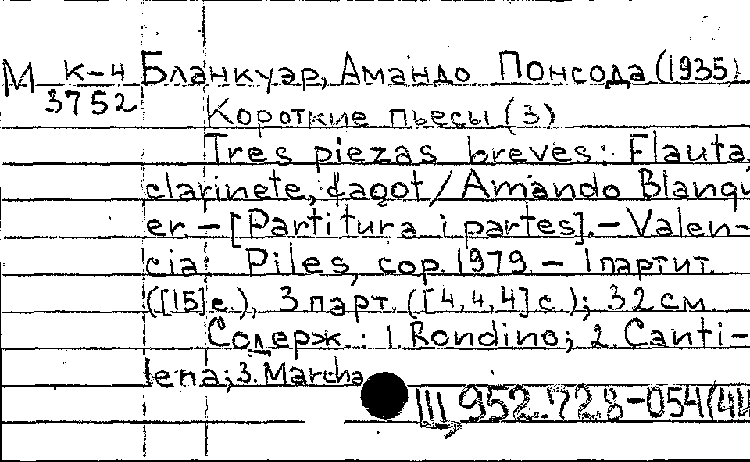 М К-4 Бланкуэр, Амандо Понсода (1935)
3752 Короткие пьесы (3)
Tres piezas breves: Flauta,
clarinete, fagot / Amando Blanqu
er. – [Partitura i partes]. – Valen-
cia: Piles, cop. 1979. – 1 партит.
([15] с.), 3 парт. ([4,4,4] с.); 32 см
Содерж.: 1. Rondino; 2. Canti-
lena; 3. Marcha
Ш 952.728-054(4И